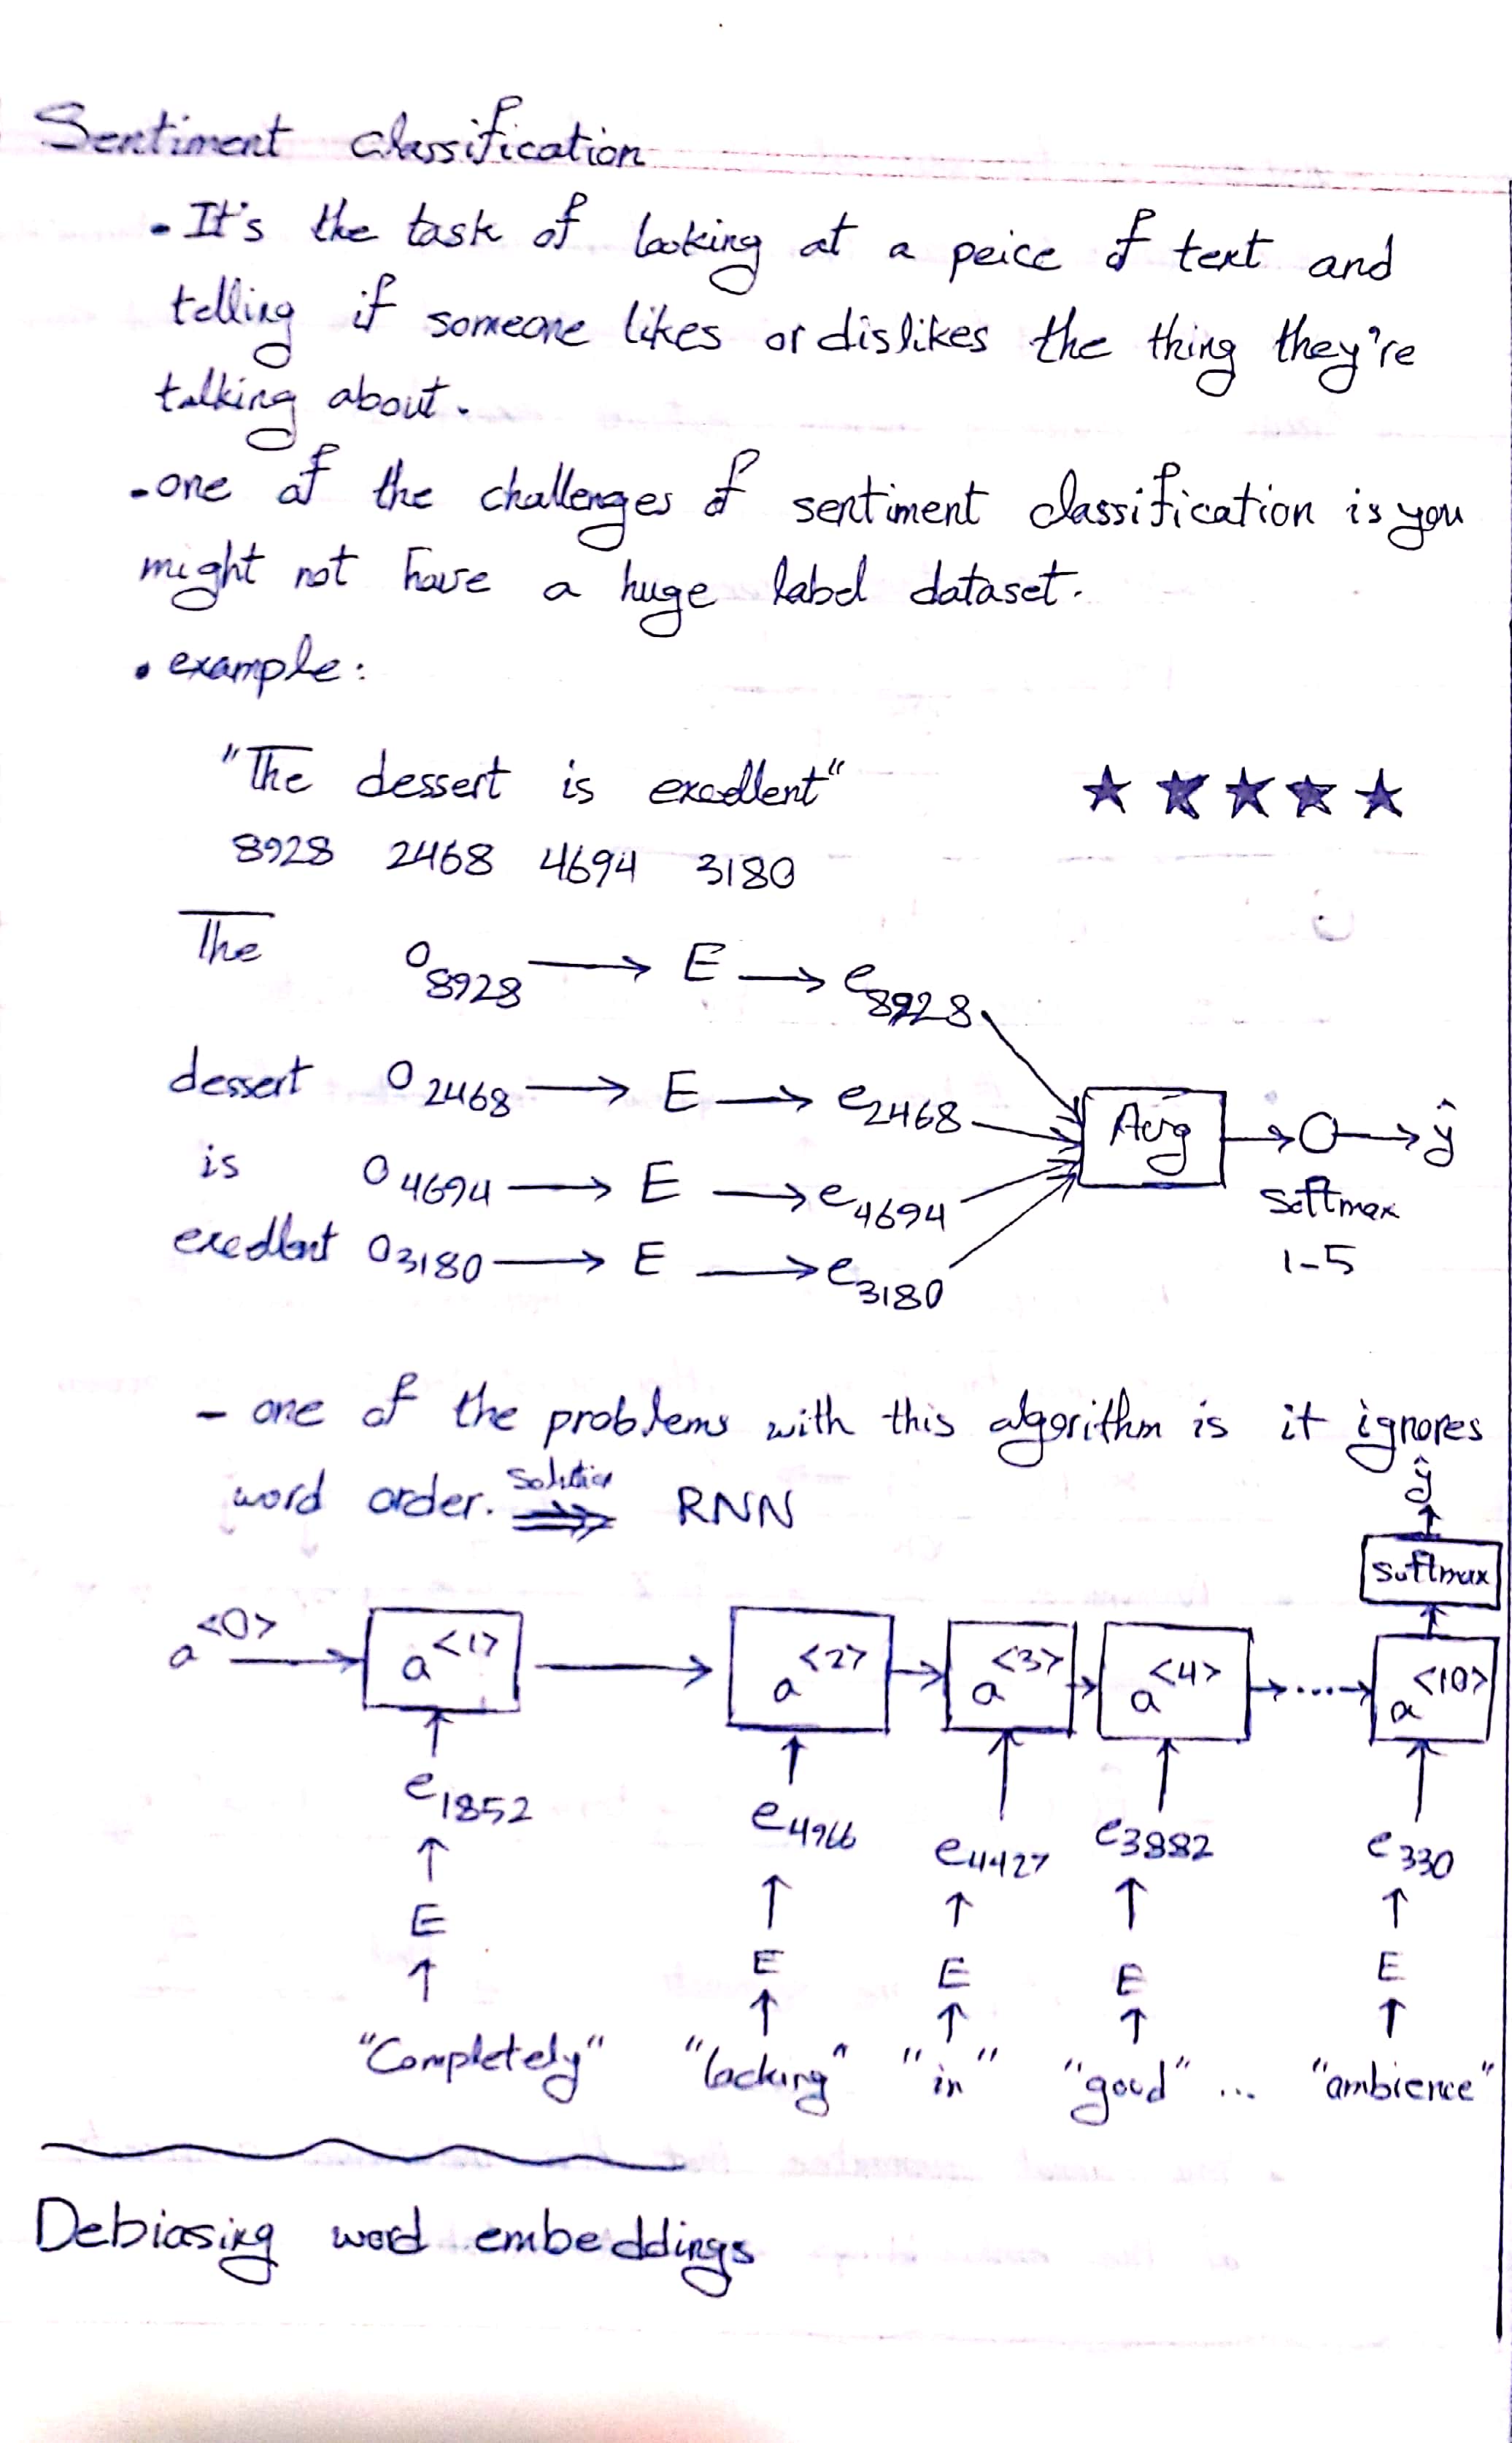 Sentiment classification
- It's the task of looking at a peice of text and
telling if someone likes or dislikes the thing they're
talking about.
- one of the challenges of sentiment classification is you
might not have a huge label dataset.
• example:
"The dessert is excellent" ★ ★ ★ ★ ★
8928 2468 4694 3180
The o8928 → E → e8928
dessert o2468 → E → e2468
Avg → O → ŷ
is o4694 → E → e4694
softmax
excellent o3180 → E → e3180
1-5
- one of the problems with this algorithm is it ignores
word order. solution ⇒ RNN
ŷ
softmax
a<0> → a<1> → a<2> → a<3> → a<4> → ... → a<10>
e1852 e4966 e4427 e3882 e330
E E E E E
"Completely" "lacking" "in" "good" ... "ambience"
Debiasing word embeddings